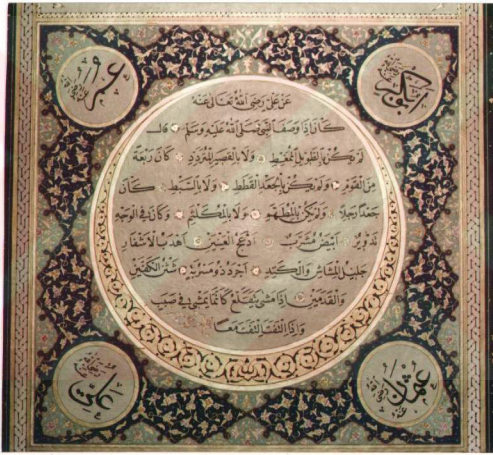 ابو بكر رضي الله عنه
عمر رضي الله عنه
عن علي رضي الله تعالى عنه
كان اذا وصف النبي صلى الله عليه وسلم قال
لم يكن بالطويل الممغط ولا بالقصير المتردد كان ربعة
من القوم ولم يكن بالجعد القطط ولا بالسبط كان
جعدا رجلا ولم يكن بالمطهم ولا بالمكلثم وكان في الوجه
تدوير ابيض مشرب ادعج العينين اهدب الاشفار
جليل المشاش والكتد اجرد ذو مسربة شثن الكفين
والقدمين اذا مشى يتقلع كانما يمشي في صبب
واذا التفت التفت معا
عثمان رضي الله عنه
علي رضي الله عنه